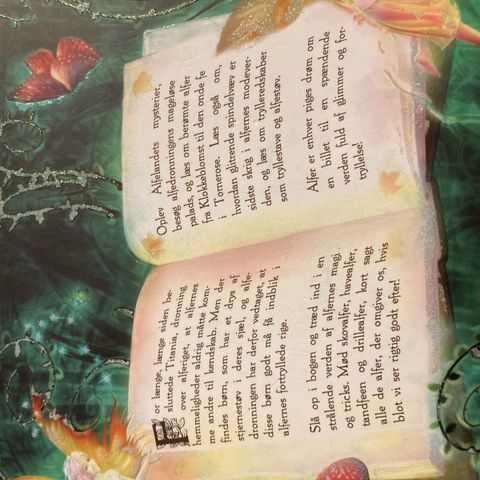 For længe, længe siden be-
sluttede Titania, dronning
over alferiget, at alfernes
hemmeligheder aldrig måtte kom-
me andre til kendskab. Men der
findes børn, som har et drys af
stjernestøv i deres sjæl, og alfe-
dronningen har derfor vedtaget, at
disse børn godt må få indblik i
alfernes fortryllede rige.
Slå op i bogen og træd ind i en
strålende verden af alfernes magi
og tricks. Mød skovalfer, havealfer,
tandfeen og drillealfer, kort sagt
alle de alfer, der omgiver os, hvis
blot vi ser rigtig godt efter!
Oplev Alfelandets mysterier,
besøg alfedronningens mageløse
palads, og læs om berømte alfer
fra Klokkeblomst til den onde fe
i Tornerose. Læs også om,
hvordan glittende spindelvæv er
sidste skrig i alfernes modever-
den, og læs om trylleredskaber
som tryllestave og alfestøv.
Alfer er enhver piges drøm om
en billet til en spændende
verden fuld af glimmer og for-
tryllelse!